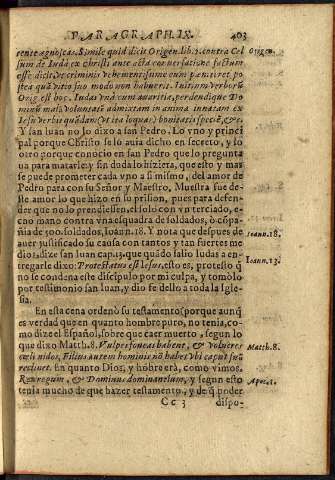 PARAGRAPH. IX. 403
rente agnoscas. Simile quid dicit Origen. lib. 2. contra Cel Origen.
sum de Iuda ex Christi ante acta conuersatione factum
esse dicit vt criminis vehementissime eum paeniteret, pos
tea quã vitio suo modo non habuerit. Initium verborũ
Orig. est hoc. Iudas vnà cum auaritia, perdendique Do
minũ mala voluntate admixtam in anima innatam ex
Iesu verbis quãdam (vt ita loquar) bonitatis speciẽ, &c.
Y san Iuan no lo dixo a san Pedro. Lo vno y princi
pal porque Christo se lo auia dicho en secreto, y lo
otro porque conocio en san Pedro que lo pregunta
ua para matarle: y sin duda lo hiziera, que esto y mas
se puede prometer cada vno a si mismo, del amor de
Pedro para con su Señor y Maestro. Muestra fue de
ste amor lo que hizo en su prision, pues para defen-
der que no lo prendiessen, el solo con vn terciado, e-
cho mano contra vna esquadra de soldados, ò espa-
ñia de 500. soldados, Ioann. 18. Y nota que despues de Ioann. 18.
auer justificado su causa con tantos y tan fuertes me
dios, dize san Iuan cap. 13. que quãdo salio Iudas a en- Ioann. 13.
tregarle dixo: Protestatus est Iesus, esto es, protestò q̃
no se condena este discipulo por mi culpa, y tomòlo
por testimonio san Iuan, y dio fe dello a toda la Igle
sia.
En esta cena ordenò su testamento: porque aunq̃
es verdad que en quanto hombre puro, no tenia, co-
mo dize el Español, sobre que caer muerto, segun lo
que dixo Matth. 8. Vulpes foueas habent, & volucres Matth. 8.
cæli nidos, Filius autem hominis nõ habet vbi caput suũ
reclinet. En quanto Dios, y hõbre era, como vimos.
Rex regum, & Dominus dominantium, y segun esto Apoc. 1.
tenia mucho de que hazer testamento, y de q̃ poder
Cc 3 dispo-